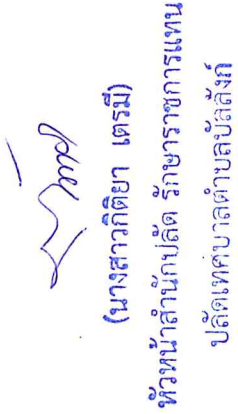 (นางสาวกิติยา เตรมี)
หัวหน้าสำนักปลัด รักษาราชการแทน
ปลัดเทศบาลตำบลบัลลังก์